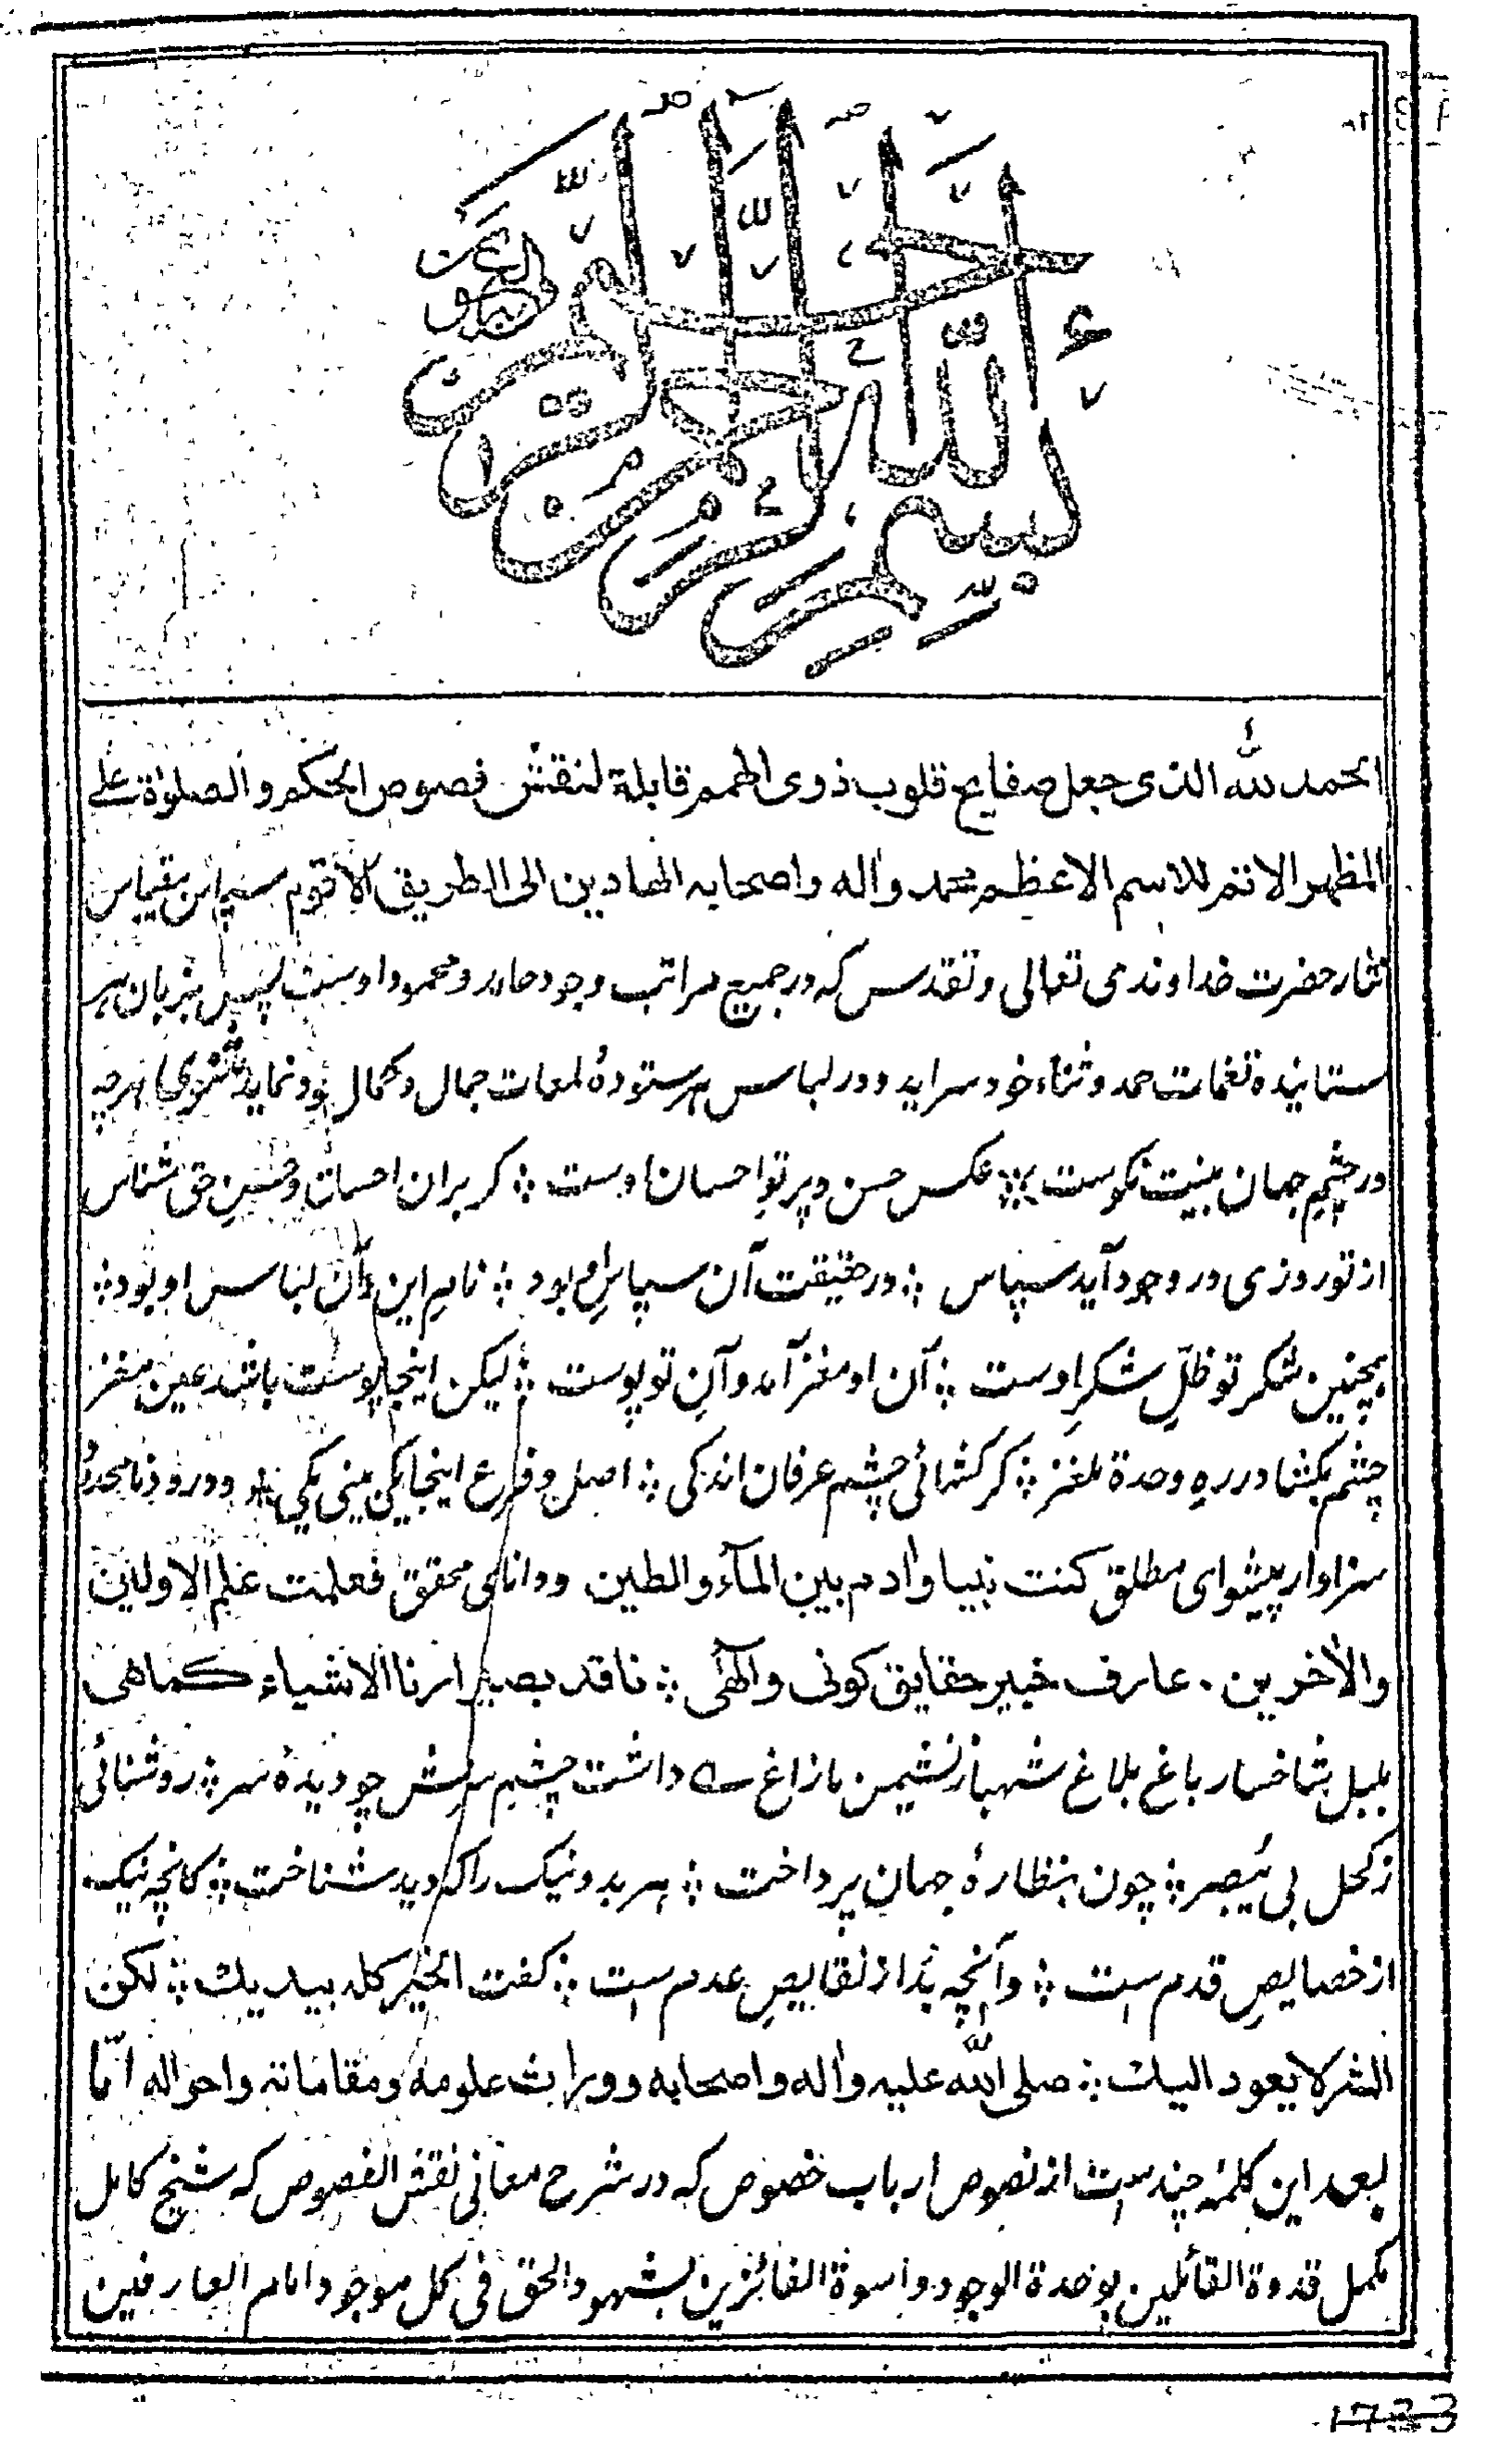 بسم الله الرحمن الرحيم
الحمد لله الذی جعل صفایح قلوب ذوی الهمم قابلة لنقش فصوص الحکم والصلوٰة علے
المظهر الاتم للاسم الاعظم محمد واٰله واصحابه الهادین الی الطریق الاقوم سپاس بیقیاس
نثار حضرت خداوندی تعالی وتقدس که در جمیع مراتب وجود حامد و محمود اوست پس بزبان هر
ستاینده نغمات حمد و ثناء خود سراید و در لباس هر ستوده لمعات جمال و کمال خود نماید مثنوی هرچه
در چشم جهان بینت نکوست ؞ عکس حسن و پرتو احسان اوست ؞ کر بران احسان و حسن حق شناس
از تو روزی در وجود آید سپاس ؞ در حقیقت آن سپاس او بود ؞ نام این وآن لباس او بود ؞
همچنین شکر تو ظلّ شکرِ اوست ؞ آن او مغز آمد وآنِ تو پوست ؞ لیکن اینجا پوست باشد عین مغز
چشم بکشا در رهِ وحدة ملغز ؞ کر کشائی چشم عرفان اندکی ؞ اصل و فرع اینجا یکی بینی یکی ؞ و درود نامحدود
سزاوار پیشوای مطلق کنت نبیا واٰدم بین المآء والطین ودانای محقق فعلمت علم الاولین
والاٰخرین ۰ عارف خبیر حقایق کونی والٰهی ؞ ناقد بصیر ارنا الاشیاء کماهی
بلبل شاخسار باغ بلاغ شهباز نشیمن مازاغ ے داشت چشم سرش چو دیدهٔ سر ؞ روشنائی
ز کحل بی یُبصِر ؞ چون بنظارهٔ جهان پرداخت ؞ هر بد و نیک را که دید شناخت ؞ کانچه نیک
از خصایصِ قدم است ؞ وآنچه بد از نقایصِ عدم است ؞ کفت الخیر کله بیدیك ؞ لکن
الشر لا یعود الیك ؞ صلی الله علیه واٰله واصحابه ووراث علومه ومقاماته واحواله امّا
بعد این کلمهٔ چندست از نصوص ارباب خصوص که در شرح معانی نقش الفصوص که شیخ کامل
مکمل قدوة القائلین بوحدة الوجود واسوة الفائزین بشهود الحق فی کل موجود امام العارفین
1733